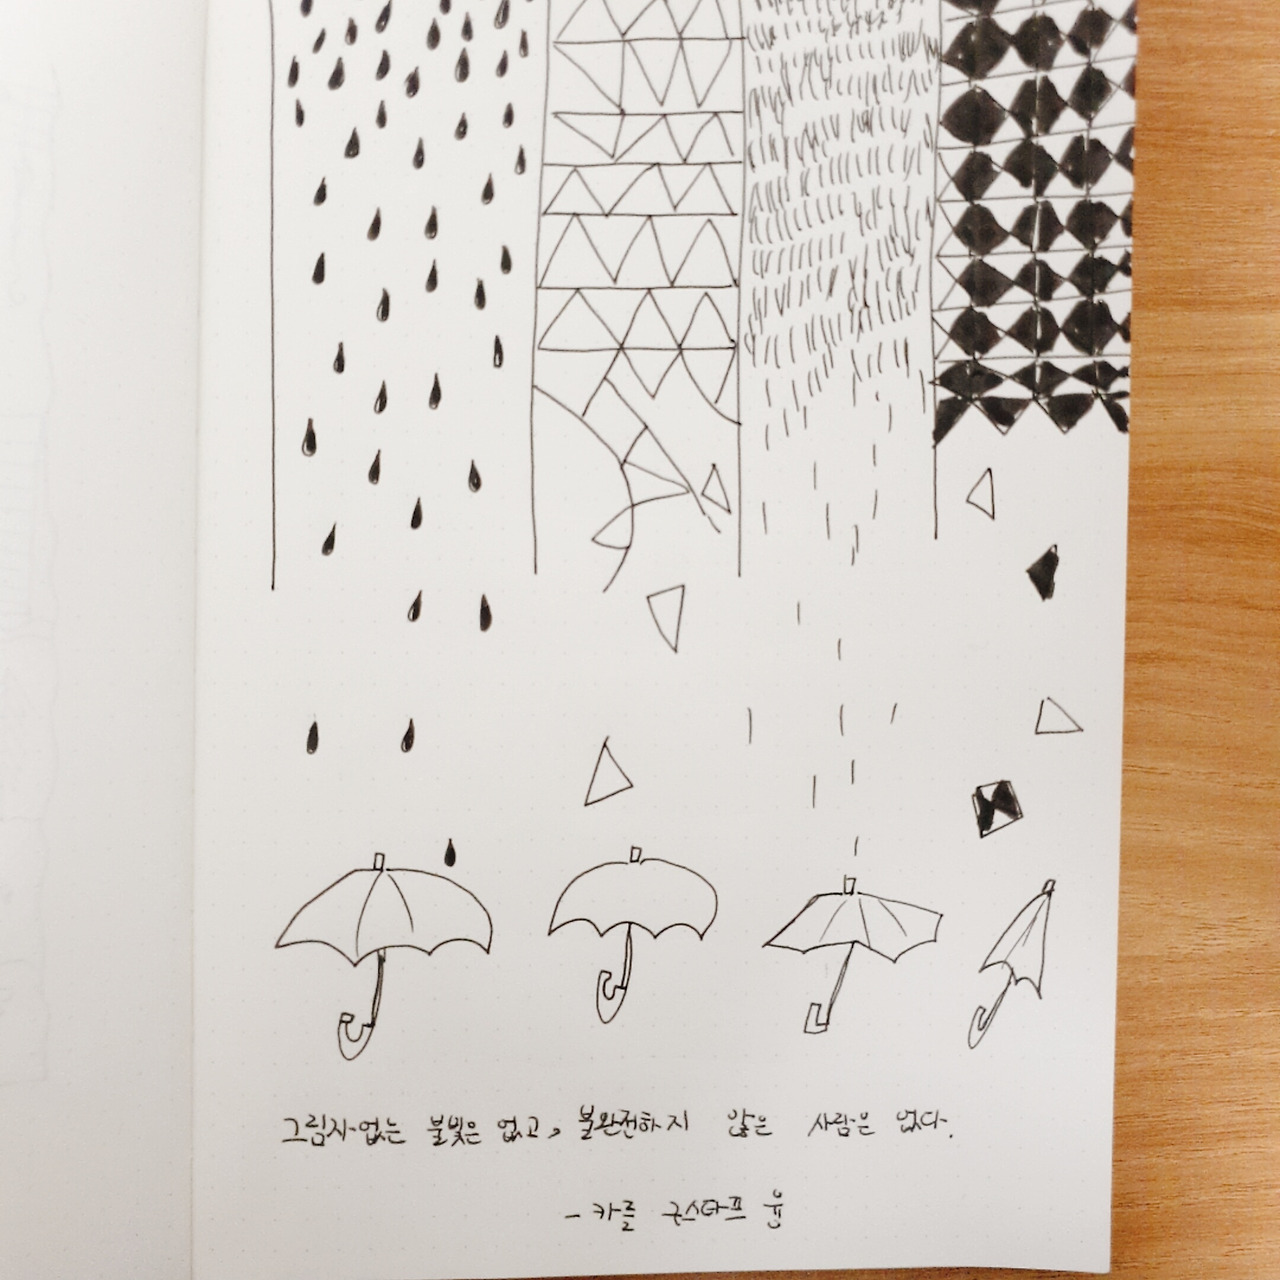 그림자없는 불빛은 없고, 불완전하지 않은 사람은 없다.
- 카를 구스타프 융